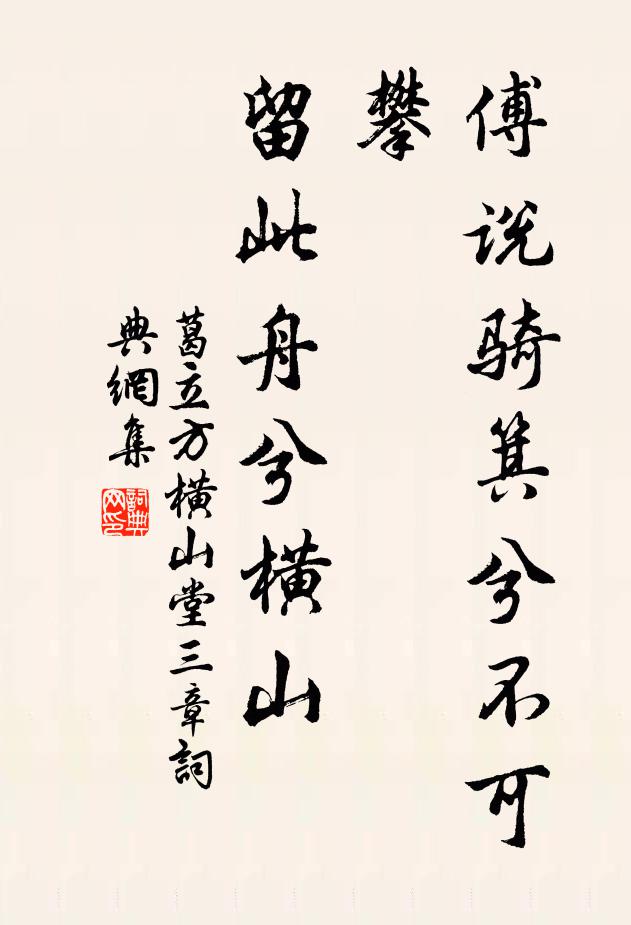 傅说骑箕兮不可
攀
留此舟兮横山
葛立方横山堂三章詞
典網集
詞典
网印